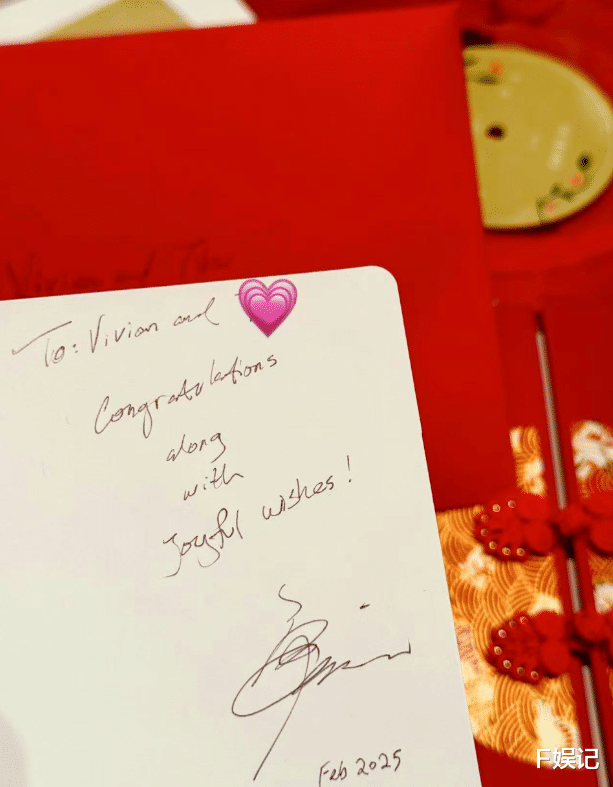 Vivian and
To: Vivian and
Congratulations
along
with
Joyful wishes!
Feb 2025
F娱记